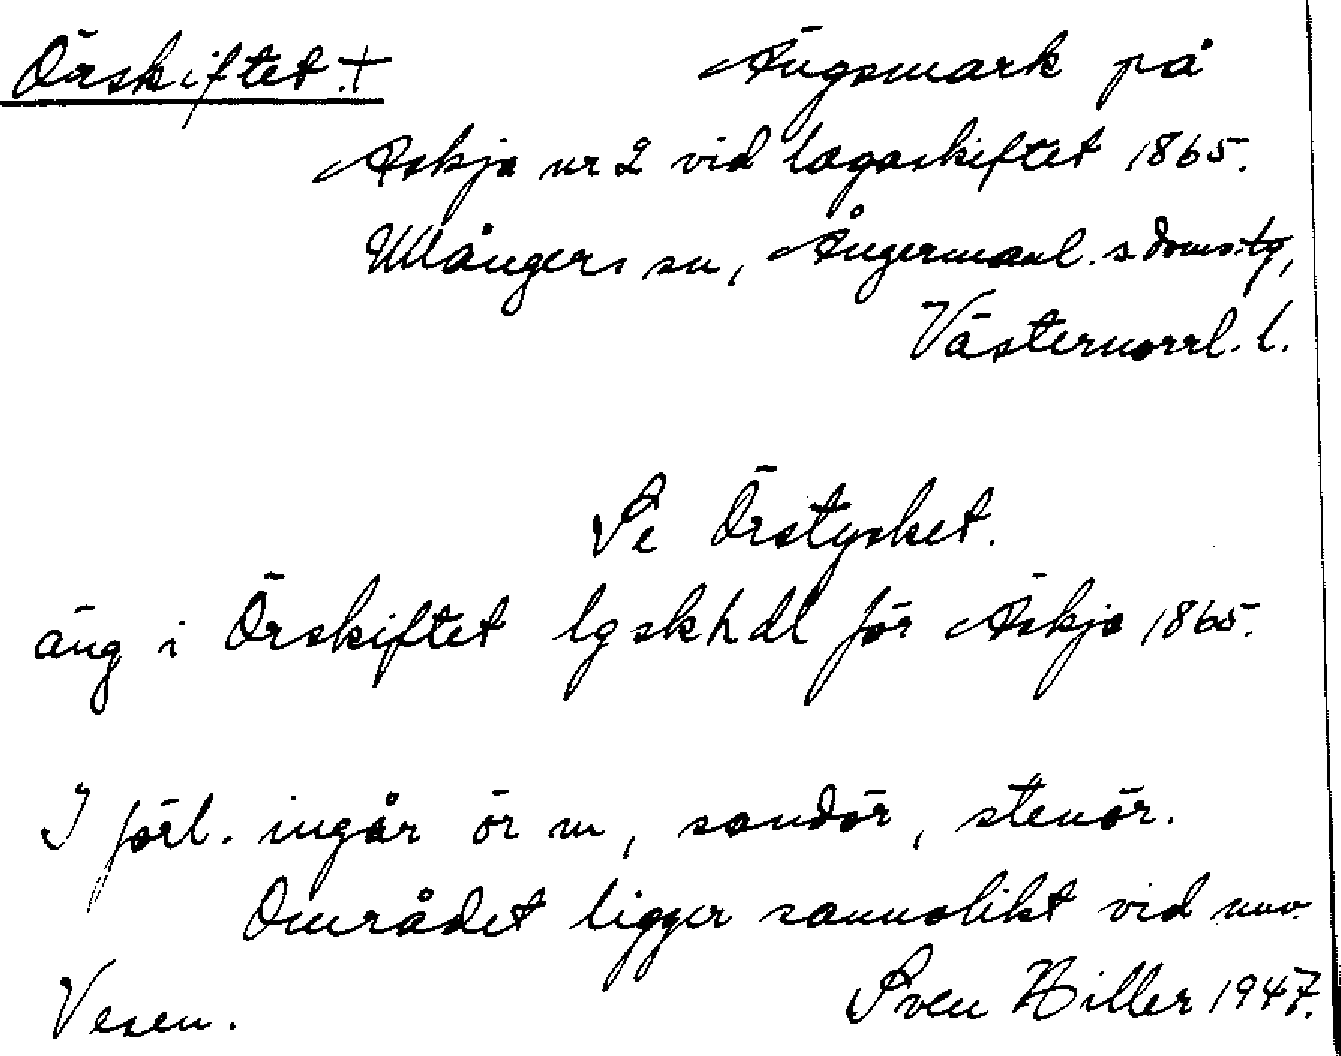 Örskiftet.+ Ängsmark på
Äskja nr 2 vid lagaskiftet 1865.
Ullångers sn, Ångermanl. s domstg,
Västernorrl. l.
Se Örstycket.
äng i Örskiftet lgskhdl för Äskja 1865.
I förl. ingår ör m, sandör, stenör.
Området ligger sannolikt vid nuv.
Vesen. Sven Hiller 1947.